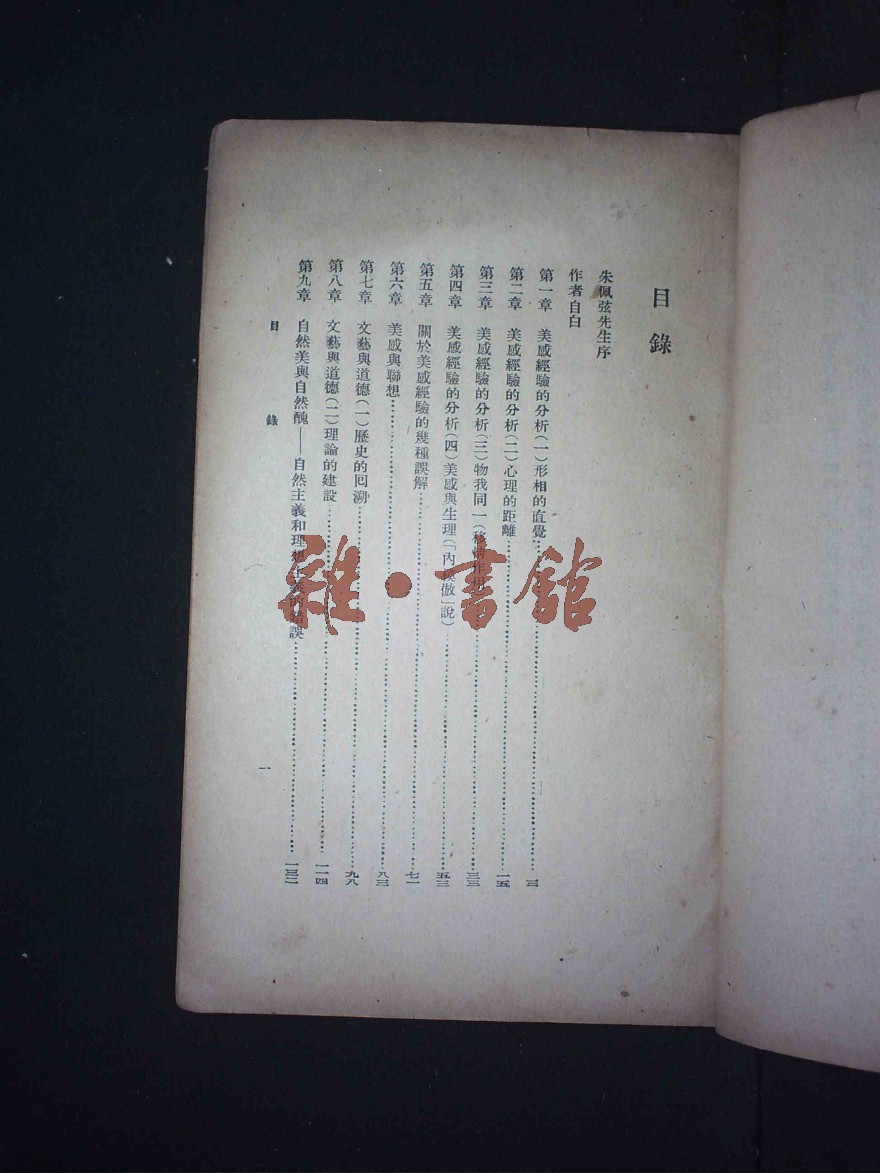 目錄
朱佩弦先生序
作者自白
第一章 美感經驗的分析(一)形相的直覺……三
第二章 美感經驗的分析(二)心理的距離……一五
第三章 美感經驗的分析(三)物我同一(移情作用……三三
第四章 美感經驗的分析(四)美感與生理(「內模倣」說)……五三
第五章 關於美感經驗的幾種誤解……七一
第六章 美感與聯想……八三
第七章 文藝與道德(一)歷史的囘溯……九八
第八章 文藝與道德(二)理論的建設……一一四
第九章 自然美與自然醜——自然主義和理想主義的錯誤……一三二
目錄 一
雜·書館